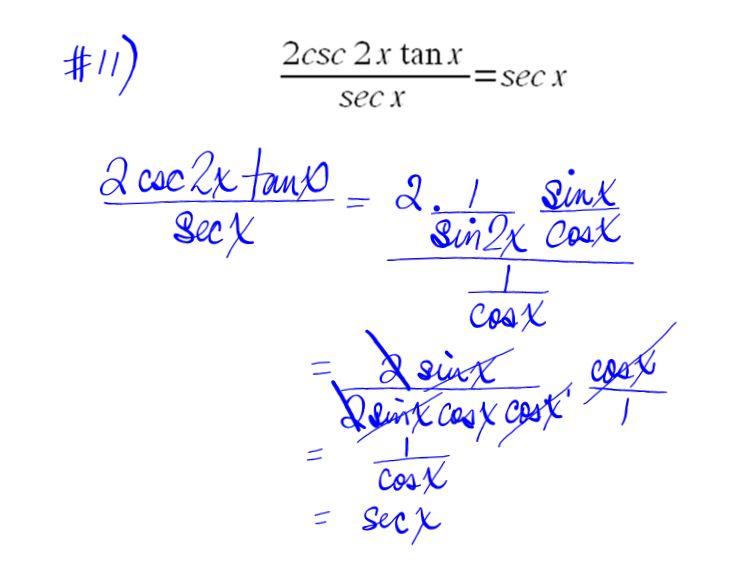 #11) 2csc 2x tan x / sec x = sec x
2 csc 2x tan x / sec x = 2 · 1/sin 2x sin x/cos x / 1/cos x
= 2 sin x / 2 sin x cos x cos x · cos x / 1
= 1 / cos x
= sec x